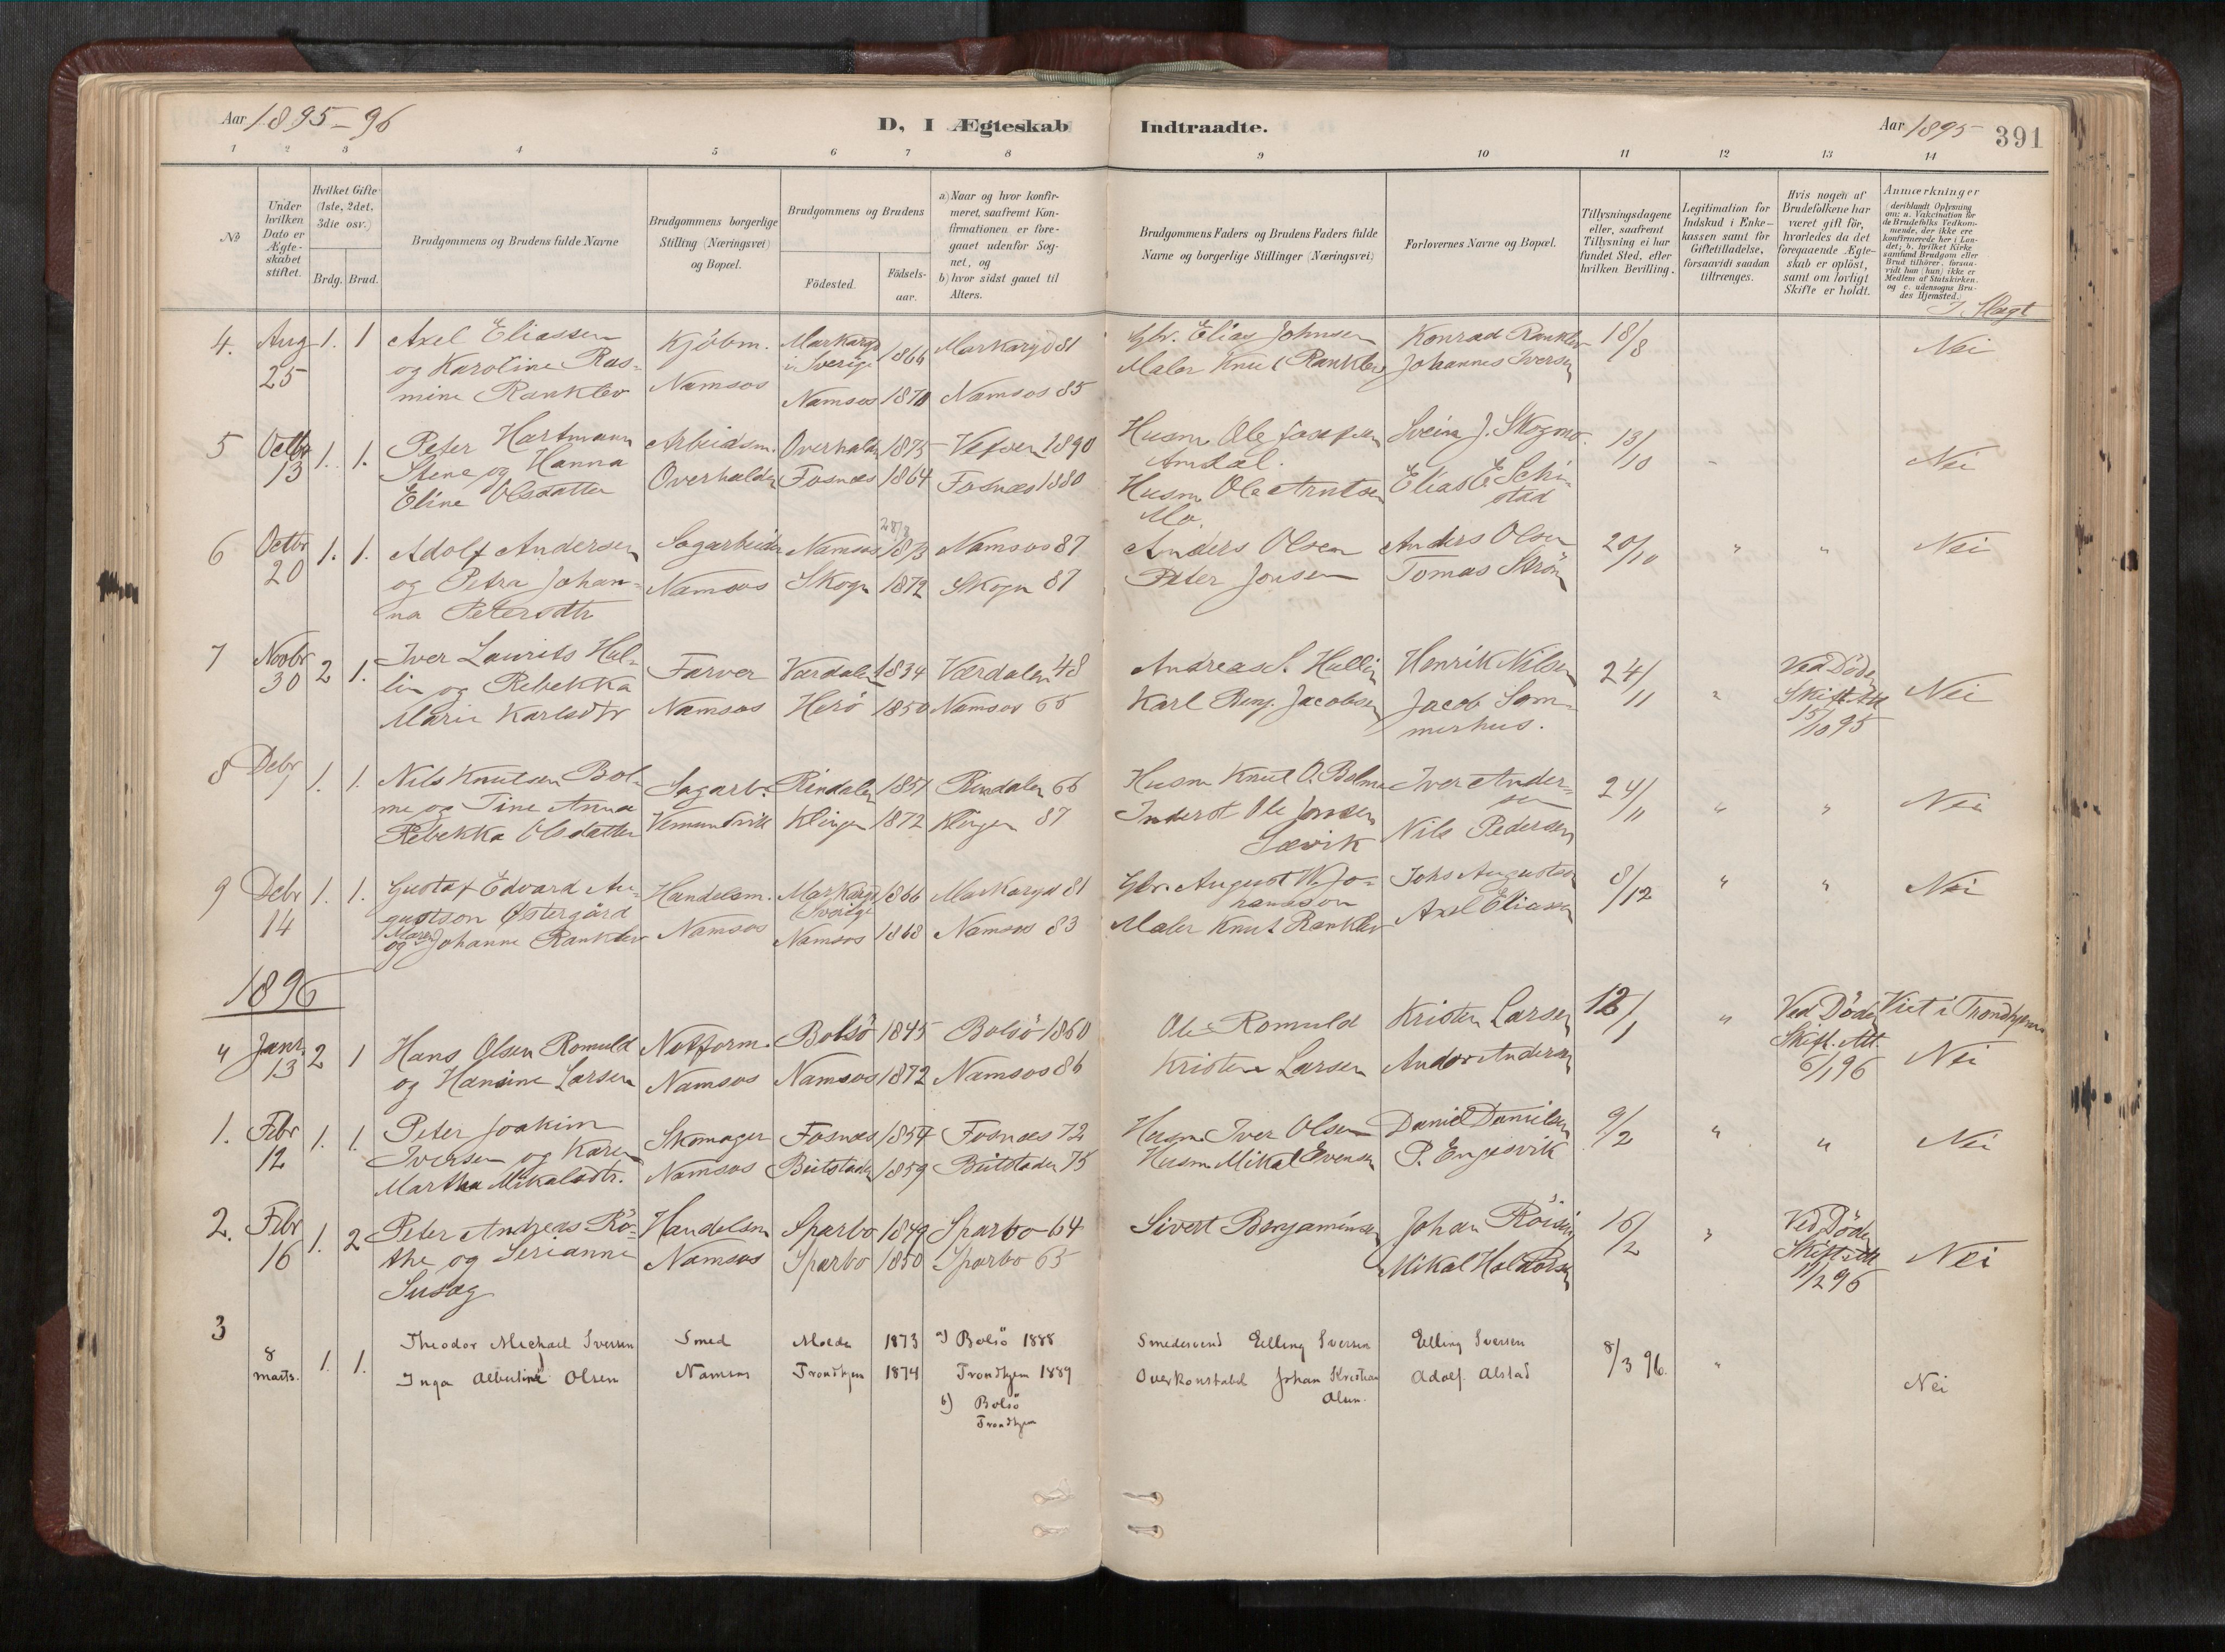 Aar 1895-96
D, I Ægteskab Indtraadte.
Aar 1895
391
1 2 3 4 5 6 7 8 9 10 11 12 13 14
№
Under hvilken Dato er Ægteskabet stiftet.
Hvilket Gifte (1ste, 2det, 3die osv.)
Brdg. Brud.
Brudgommens og Brudens fulde Navne
Brudgommens borgerlige Stilling (Næringsvei) og Bopæl.
Brudgommens og Brudens
Fødested.
Fødselsaar.
a) Naar og hvor konfirmeret, saafremt Konfirmationen er foregaaet udenfor Sognet, og
b) hvor sidst gaaet til Alters.
Brudgommens Faders og Brudens Faders fulde Navne og borgerlige Stillinger (Næringsvei)
Forlovernes Navne og Bopæl.
Tillysningsdagene eller, saafremt Tillysning ei har fundet Sted, efter hvilken Bevilling.
Legitimation for Indskud i Enkekassen samt for Giftetilladelse, forsaavidt saadan tiltrænges.
Hvis nogen af Brudefolkene har været gift før, hvorledes da det foregaaende Ægteskab er opløst, samt om lovligt Skifte er holdt.
Anmærkninger (deriblandt Oplysning om: a. Vakcination for de Brudefolks Vedkommende, der ikke ere konfirmerede her i Landet; b. hvilket Kirkesamfund Brudgom eller Brud tilhører, forsaavidt han (hun) ikke er Medlem af Statskirken, og c. udensogns Brudes Hjemsted.)
I Slagt
4. Aug 1. 1 Axel Eliassen Kjöbm. Markaryd 1866 Markaryd 81 Gbr. Elias Johnsen Konrad Ranklev 18/8 Nei
25 og Karoline Ras- Namsos i Sverige Maler Knut Ranklev Johannes Iversen
mine Ranklev Namsos 1870 Namsos 85
5 Octbr 1. 1. Peter Hartmann Arbeidsm. Overhalden 1873 Vefsen 1890 Husm. Ole Josefsen Svein J. Skogmo. 13/10 Nei
13 Stene og Hanna Overhalden Fosnæs 1864 Fosnæs 1880 Amdal. Elias E Schi-
Eline Olsdatter Husm. Ole Arntsen stad
Mo.
6 Octbr 1. 1. Adolf Andersen Sagarbeider Namsos 1873 Namsos 87 Anders Olsen Anders Olsen 20/10 " " Nei
20 og Petra Johan- Namsos Skogn 1872 Skogn 87 Peter Jonsen Tomas Ström
na Petersdtr
7 Novbr 2 1. Iver Laurits Hal- Farver Værdalen 1834 Værdalen 48 Henrik Nilsen 24/11 " Ved Döden Nei
30 lin og Rebekka Namsos Herö 1850 Namsos 65 Karl Beng. Jacobsen Jacob Som- Skift. Att
Marie Karlsdtr merhus. 15/10 95
8 Debr 1. 1. Nils Knutsen Bol- Sagarb. Rindalen 1851 Rindalen 66 Husm Knut O. Bolme Iver Ander- 24/11 " " Nei
1 me og Tine Anna Vemundvik Klingen 1872 Klingen 87 Inderst Ole Jonsen sen
Rebekka Olsdatter Sævik Nils Pedersen
9 Debr 1. 1. Gustaf Edvard Au- Handelsm. Markaryd 1866 Markaryd 81 Gbr. August W. Jo- Johs Augustson 8/12 " " Nei
14 gustson Østergård Namsos Sverige hansson Axel Eliassen
og Maren Johanne Ranklev Namsos 1868 Namsos 83 Maler Knut Ranklev
1896
4 Janr. 2 1 Hans Olsen Romuld Notform. Bolsö 1845 Bolsö 1860 Ole Romuld Kristen Larsen 12/1 " Ved Döden Viet i Trondhjem
13 og Hansine Larsen Namsos Namsos 1872 Namsos 86 Kristen Larsen Andor Andersen Skift. Att. Nei
6/1 96
1. Febr 1. 1. Peter Joakim Skomager Fosnæs 1854 Fosnæs 72 Husm Iver Olsen Daniel Danielsen 9/2 " " Nei
12 Iversen og Karen Namsos Beitstaden 1859 Beitstaden 75 Husm. Mikal Evensen P. Engesvik
Martha Mikalsdtr.
2. Febr 1. 2 Peter Andreas Rö- Handelsm Sparbo 1849 Sparbo 64 Sivert Benjaminsen Johan 16/2 " Ved Döden Nei
16 the og Serianne Namsos Sparbo 1850 Sparbo 65 Mikal Haldorsen Skift. Att
Susag 11/2 96
3 8 marts. 1. 1. Theodor Michael Iversen Smed Molde 1873 a) Bolsö 1888 Smedesvend Elling Iversen Elling Iversen 8/3 96. " Nei
Inga Albertine Olsen Namsos Trondhjem 1874 Trondhjem 1889 Overkonstabel Johan Kristian Adolf Alstad
Olsen.
b) Bolsö
Trondhjem